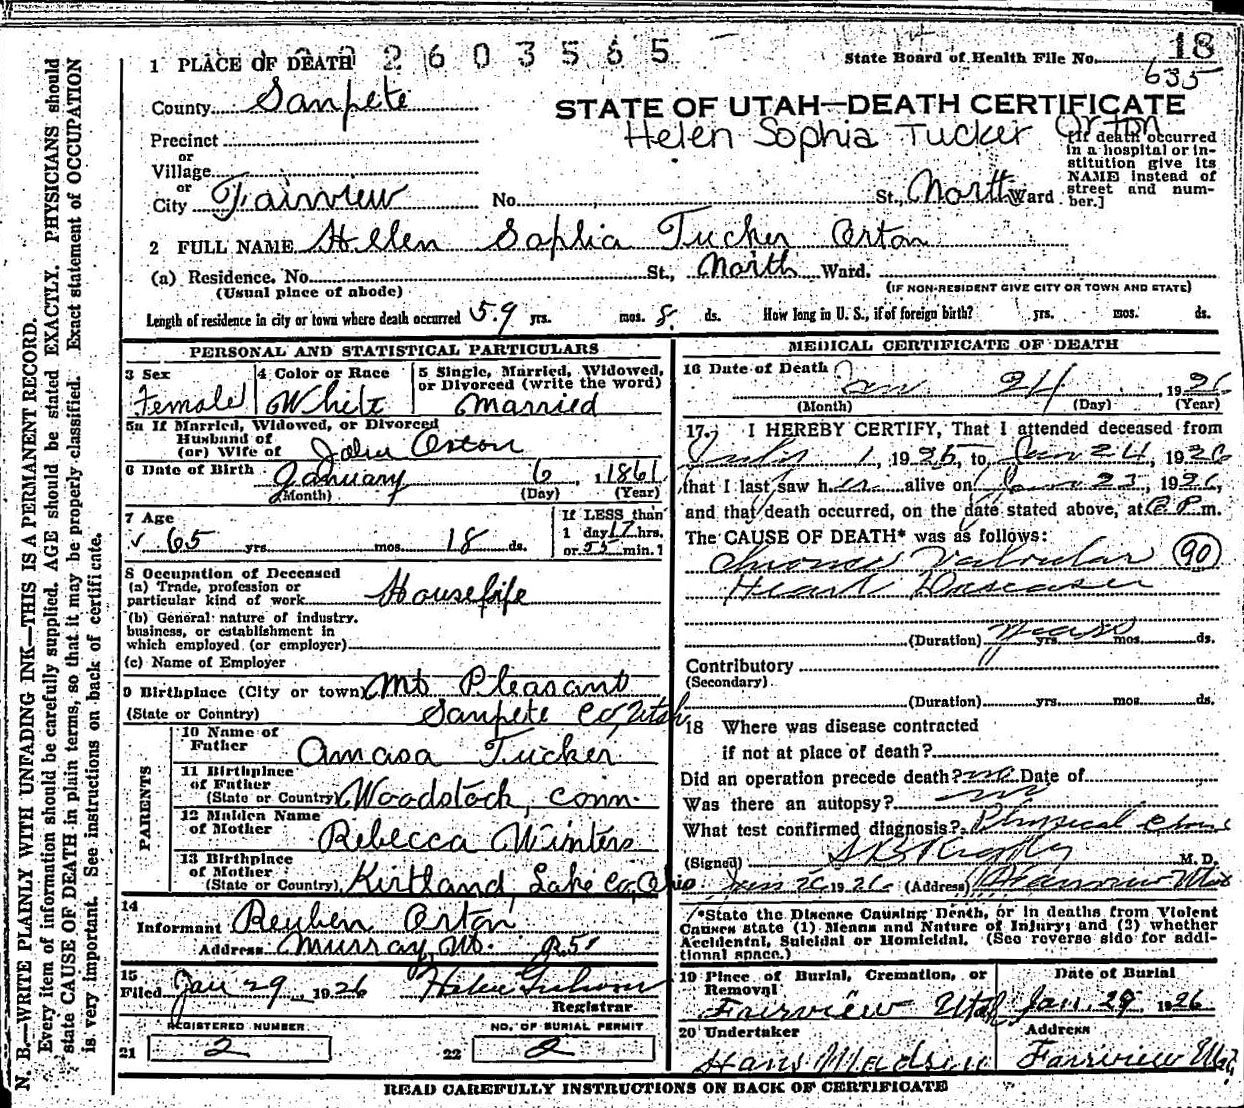 N. B.—WRITE PLAINLY WITH UNFADING INK—THIS IS A PERMANENT RECORD.
Every item of information should be carefully supplied. AGE should be stated EXACTLY. PHYSICIANS should
state CAUSE OF DEATH in plain terms, so that it may be properly classified. Exact statement of OCCUPATION
is very important. See instructions on back of certificate.
2603565
State Board of Health File No. 18
635
1 PLACE OF DEATH
County Sanpete
STATE OF UTAH—DEATH CERTIFICATE
Helen Sophia Tucker Orton
Precinct
or
Village
or
City Fairview No. St., North Ward
[If death occurred
in a hospital or in-
stitution give its
NAME instead of
street and num-
ber.]
2 FULL NAME Helen Sophia Tucker Orton
(a) Residence. No. St., North Ward.
(Usual place of abode)
(IF NON-RESIDENT GIVE CITY OR TOWN AND STATE)
Length of residence in city or town where death occurred 59 yrs. mos. 8 ds. How long in U. S., if of foreign birth? yrs. mos. ds.
PERSONAL AND STATISTICAL PARTICULARS
3 Sex
Female
4 Color or Race
White
5 Single, Married, Widowed,
or Divorced (write the word)
Married
5a If Married, Widowed, or Divorced
Husband of
(or) Wife of John Orton
6 Date of Birth January 6, 1861
(Month) (Day) (Year)
7 Age
65 yrs. mos. 18 ds.
If LESS than
1 day 17 hrs.
or 55 min.
8 Occupation of Deceased
(a) Trade, profession or
particular kind of work Housefife
(b) General nature of industry,
business, or establishment in
which employed (or employer)
(c) Name of Employer
9 Birthplace (City or town) Mt Pleasant
(State or Country) Sanpete Co, Utah
PARENTS
10 Name of
Father Amasa Tucker
11 Birthplace
of Father
(State or Country) Woodstock, Conn.
12 Maiden Name
of Mother Rebecca Winters
13 Birthplace
of Mother
(State or Country) Kirtland, Lake Co, Ohio
14
Informant Reuben Orton
Address Murray, R5
15
Filed Jan 29, 1926
Registrar
REGISTERED NUMBER
21 2
NO. OF BURIAL PERMIT
22 2
MEDICAL CERTIFICATE OF DEATH
16 Date of Death Jan 24, 1926
(Month) (Day) (Year)
17. I HEREBY CERTIFY, That I attended deceased from
July 1, 1925, to Jan 24, 1926
that I last saw her alive on Jan 23, 1926,
and that death occurred, on the date stated above, at P. m.
The CAUSE OF DEATH* was as follows:
Chronic Valvular 90
Heart Disease
(Duration) years yrs. mos. ds.
Contributory
(Secondary)
(Duration) yrs. mos. ds.
18 Where was disease contracted
if not at place of death?
Did an operation precede death? no Date of
Was there an autopsy? no
What test confirmed diagnosis? Physical
(Signed) M. D.
Jan 26 1926 (Address) Fairview Utah
*State the Disease Causing Death, or in deaths from Violent
Causes state (1) Means and Nature of Injury; and (2) whether
Accidental, Suicidal or Homicidal. (See reverse side for addi-
tional space.)
19 Place of Burial, Cremation, or
Removal
Fairview Utah
Date of Burial
Jan. 29, 1926
20 Undertaker
Hans Madsen
Address
Fairview Utah
READ CAREFULLY INSTRUCTIONS ON BACK OF CERTIFICATE